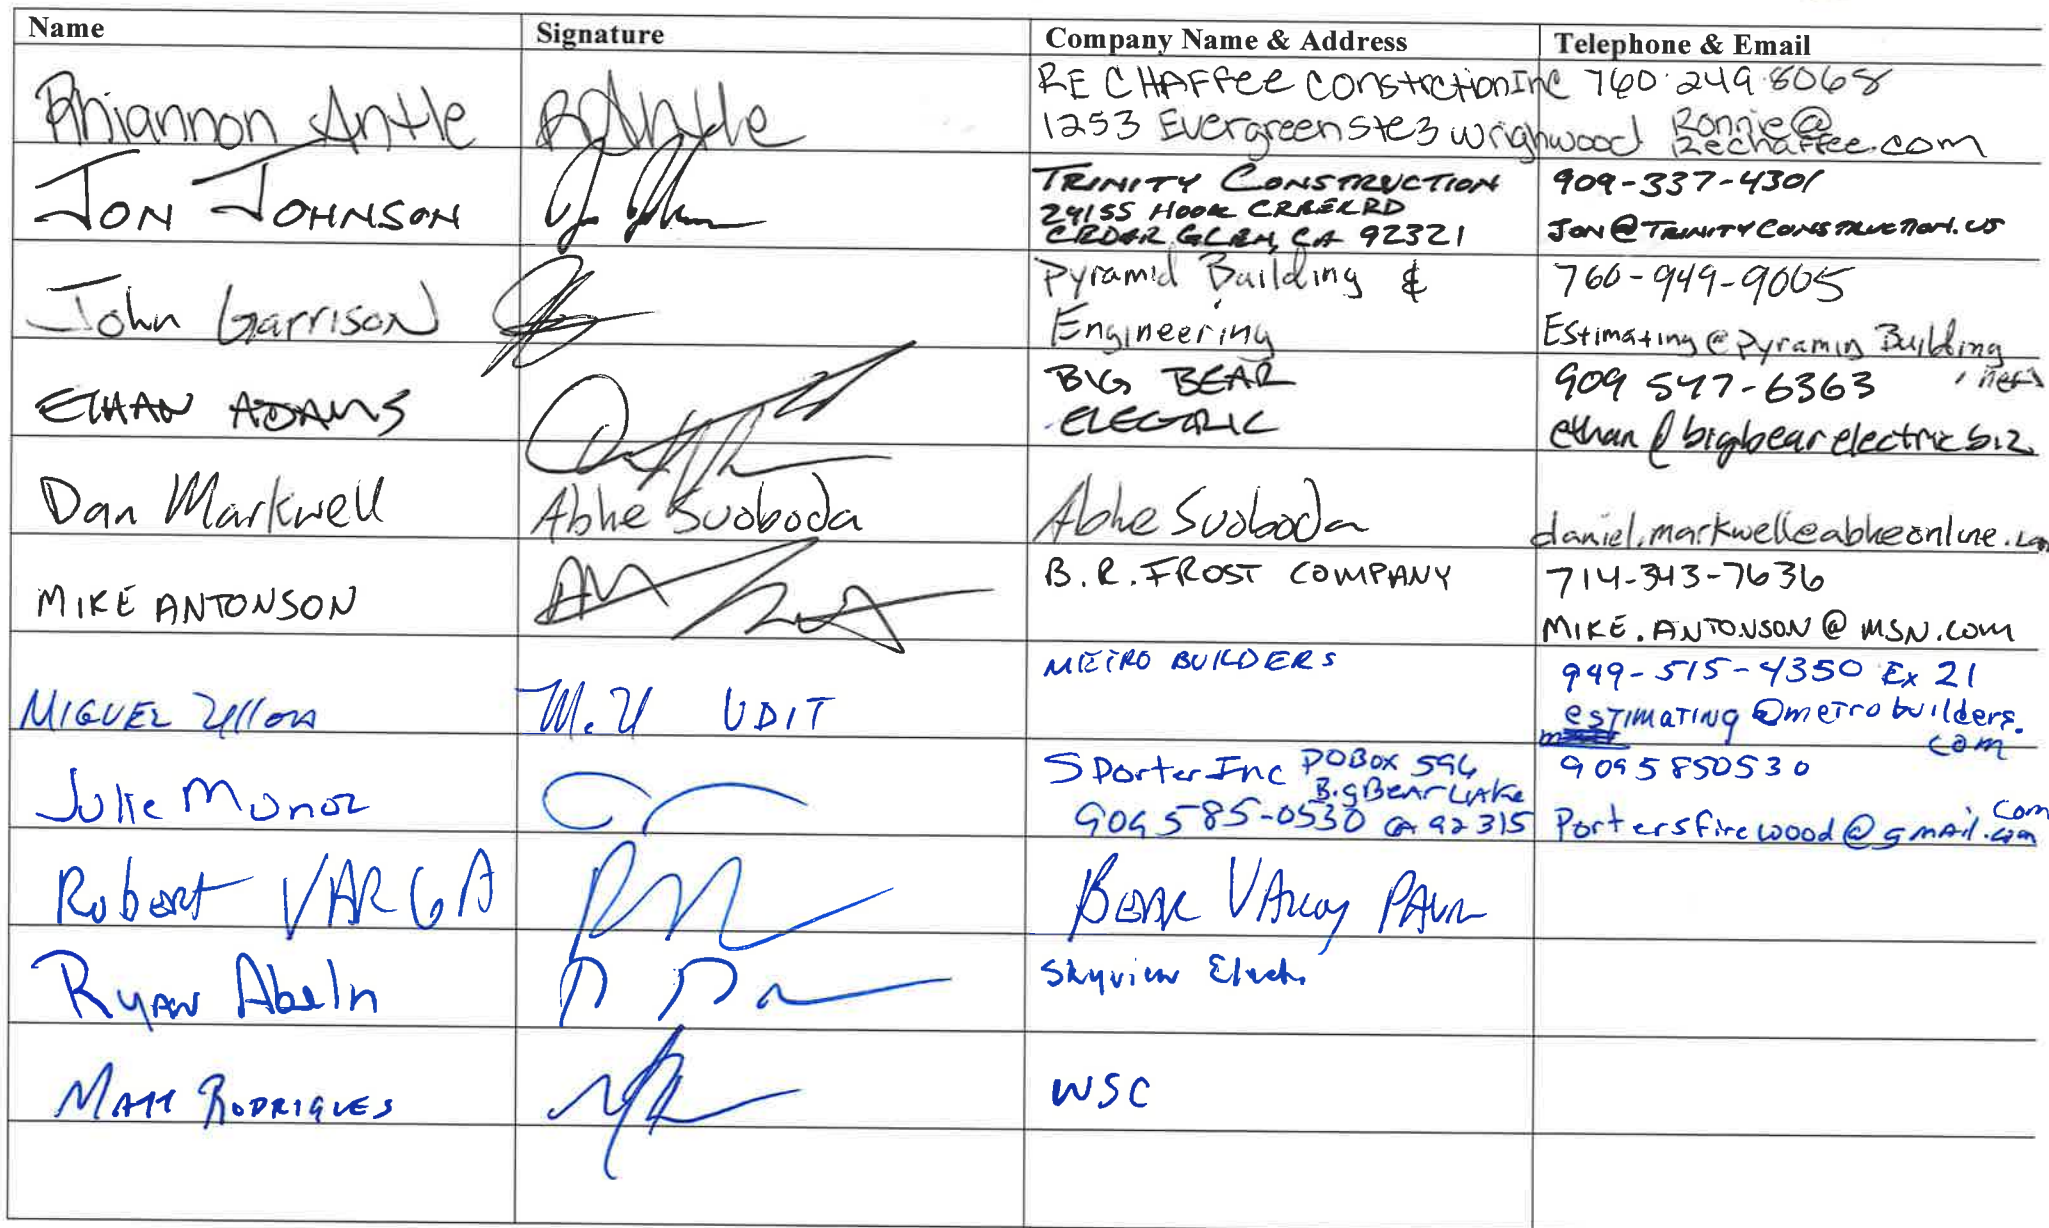 Name Signature Company Name & Address Telephone & Email
Rhiannon Antle RAntle RE CHAFFee ConstrctionInc 760·249·8068
1253 Evergreen Ste3 Wrighwood Ronnie@
Rechaffee.com
JON JOHNSON TRINITY CONSTRUCTION 909-337-4301
29155 HOOK CREEK RD
CEDAR GLEN, CA 92321 JON@TRINITYCONSTRUCTION.US
John Garrison Pyramid Building & 760-949-9005
Engineering Estimating@Pyramid Building
.net
ETHAN ADAMS BIG BEAR 909 547-6363
ELECTRIC ethan@bigbearelectric.biz
Dan Markwell Abhe Svoboda Abhe Svoboda daniel.markwell@abheonline.com
MIKE ANTONSON B.R. FROST COMPANY 714-343-7636
MIKE.ANTONSON@MSN.COM
MIGUEL Ulloa M.U UDIT METRO BUILDERS 949-515-4350 Ex 21
estimating@metrobuilders.
com
Julie Munoz S Porter Inc POBox 596 9095850530
Big Bear Lake
909 585-0530 CA 92315 Portersfirewood@gmail.com
com
Robert VARGA BEAR VALLEY PAVING
Ryan Abeln Skyview Elect.
MATT RODRIGUES WSC